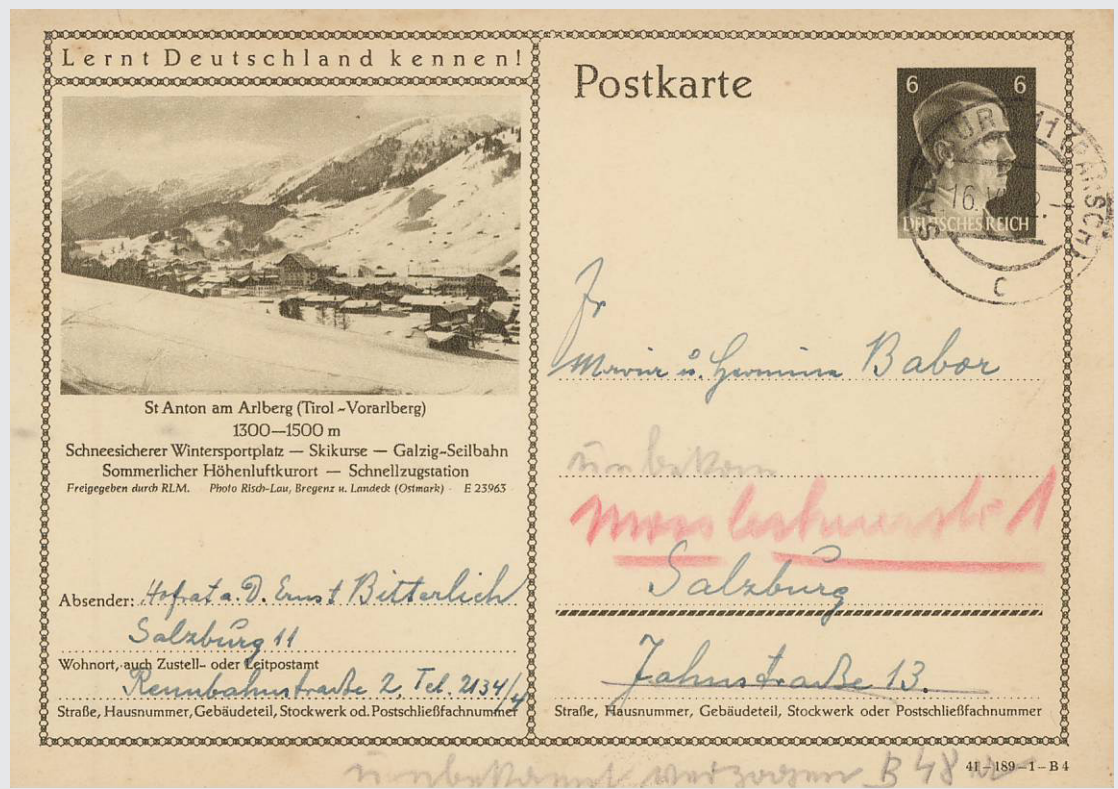 Lernt Deutschland kennen!
St Anton am Arlberg (Tirol-Vorarlberg)
1300—1500 m
Schneesicherer Wintersportplatz — Skikurse — Galzig-Seilbahn
Sommerlicher Höhenluftkurort — Schnellzugstation
Freigegeben durch RLM. Photo Risch-Lau, Bregenz u. Landeck (Ostmark) E 23963
Absender: Hofrat a. D. Ernst Bitterlich
Salzburg 11
Wohnort, auch Zustell- oder Leitpostamt
Rennbahnstraße 2, Tel. 2134/4
Straße, Hausnummer, Gebäudeteil, Stockwerk od. Postschließfachnummer
Postkarte
6 6
DEUTSCHES REICH
11 PARSCH
16.
c
Fr
u. Hermine Babor
1
Salzburg
Jahnstraße 13.
Straße, Hausnummer, Gebäudeteil, Stockwerk oder Postschließfachnummer
unbekannt verzogen B 48
41-189-1-B4